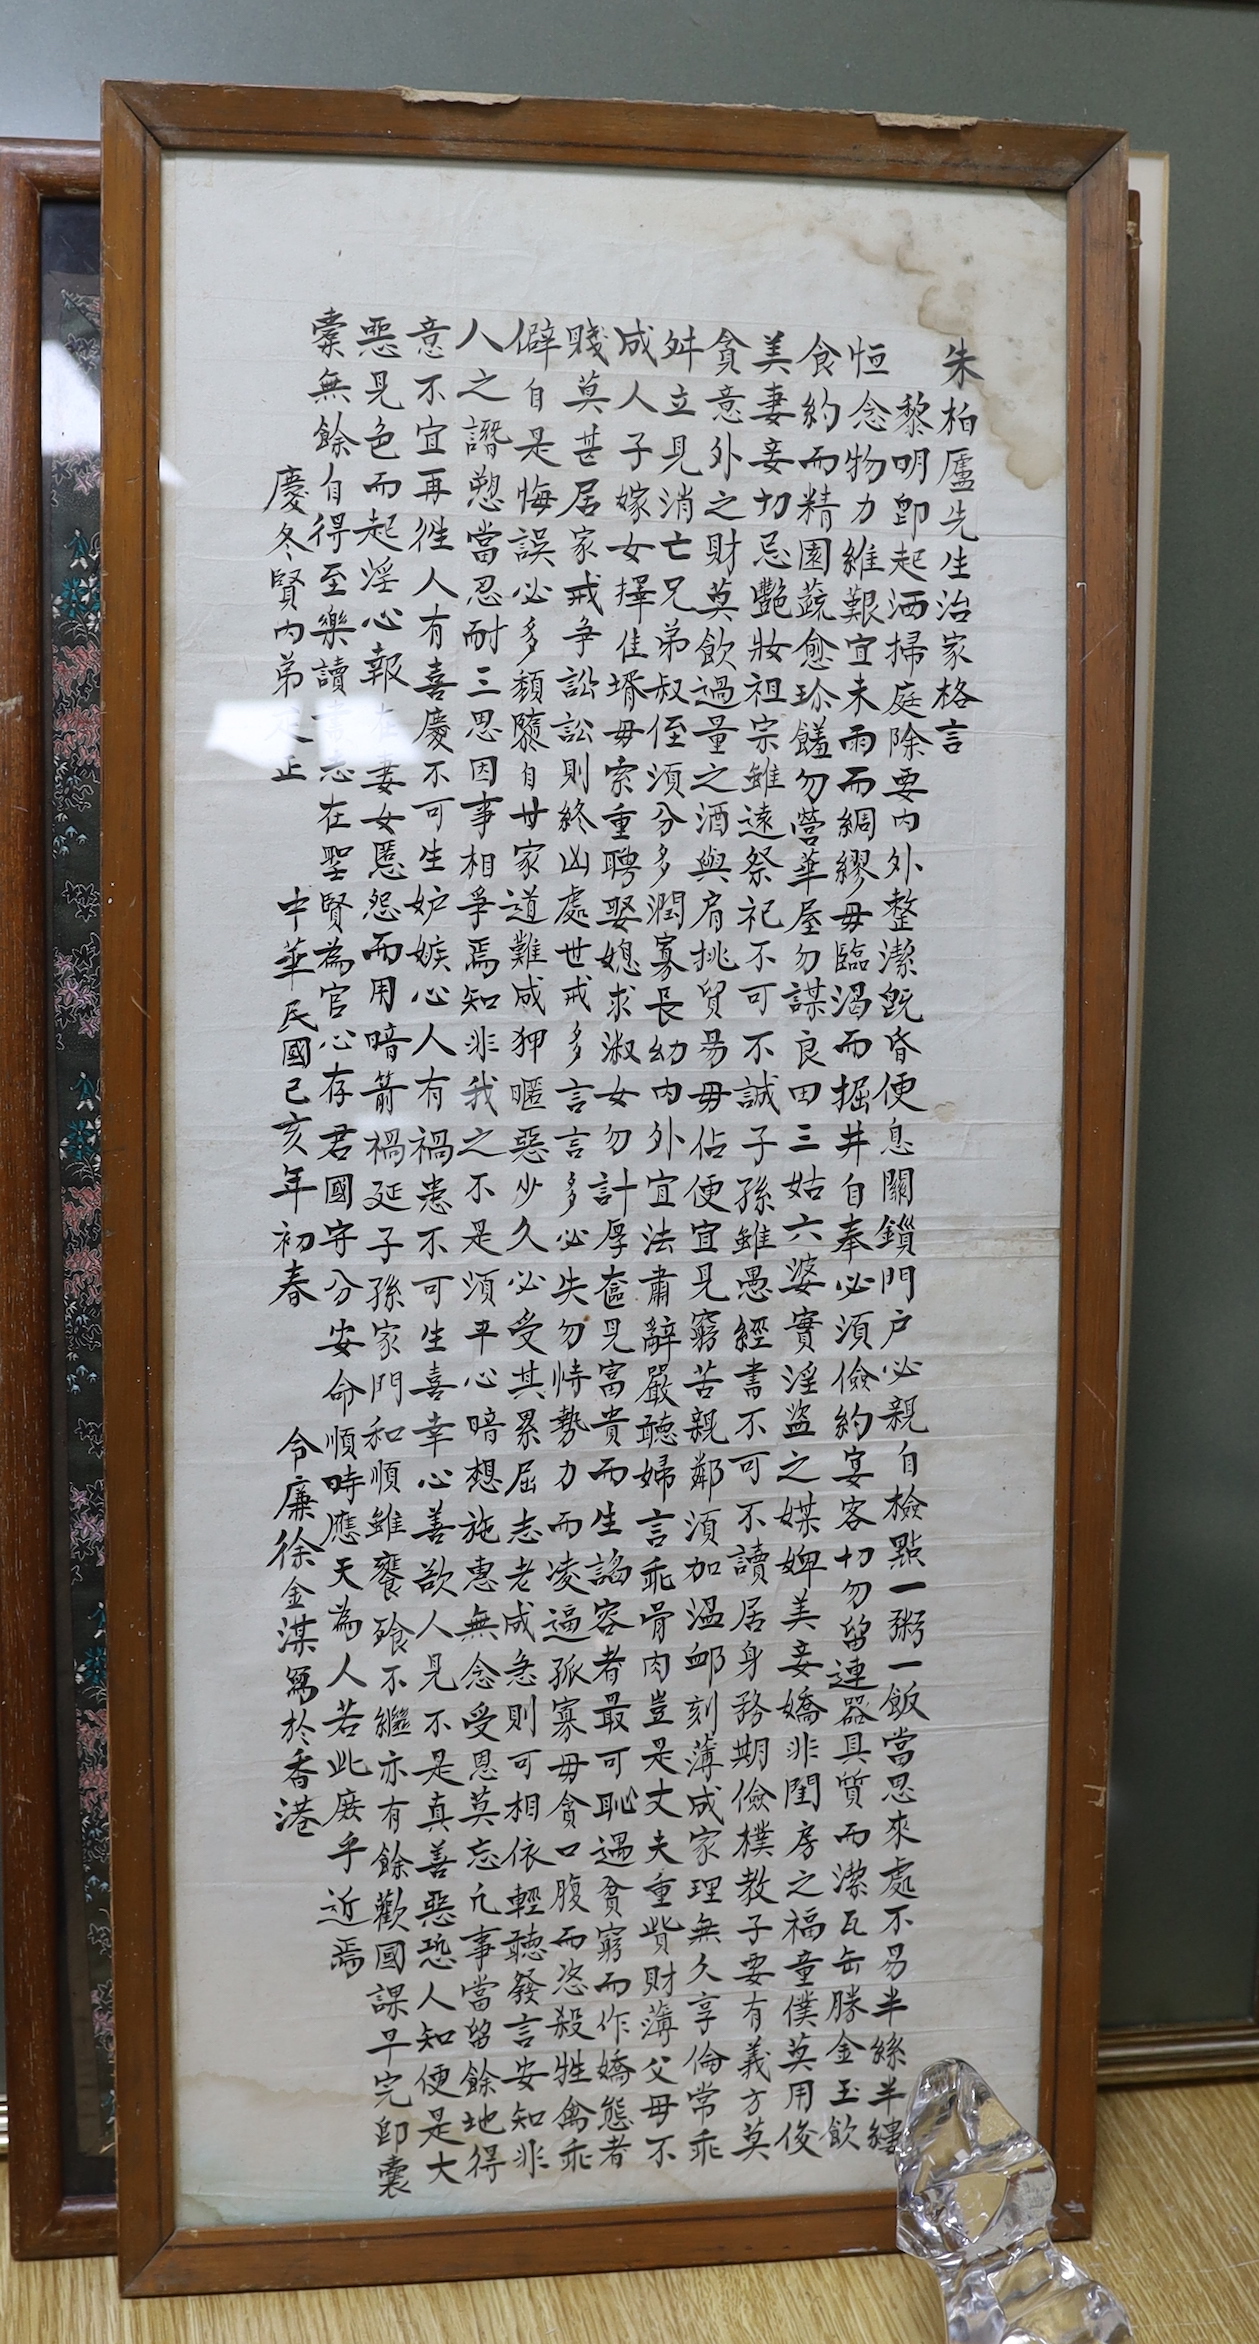 朱柏廬先生治家格言
黎明即起洒掃庭除要內外整潔旣昏便息關鎖門户必親自檢點一粥一飯當思來處不易半絲半縷
恒念物力維艱宜未雨而綢繆毋臨渴而掘井自奉必須儉約宴客切勿留連器具質而潔瓦缶勝金玉飲
食約而精園蔬愈珍饈勿營華屋勿謀良田三姑六婆實淫盜之媒婢美妾嬌非閨房之福童僕莫用俊
美妻妾切忌艷妝祖宗雖遠祭祀不可不誠子孫雖愚經書不可不讀居身務期儉樸教子要有義方莫
貪意外之財莫飲過量之酒與肩挑貿易毋佔便宜見窮苦親鄰須加温邮刻薄成家理無久享倫常乖
舛立見消亡兄弟叔侄須分多潤寡長幼內外宜法肅辭嚴聽婦言乖骨肉豈是丈夫重貲財薄父母不
成人子嫁女擇佳壻毋索重聘娶媳求淑女勿計厚奩見富貴而生謟容者最可恥遇貧窮而作嬌態者
賤莫甚居家戒爭訟訟則終凶處世戒多言言多必失勿恃勢力而凌逼孤寡毋貪口腹而恣殺牲禽乖
僻自是悔誤必多頹隳自甘家道難成狎暱惡少久必受其累屈志老成急則可相依輕聽發言安知非
人之譖愬當忍耐三思因事相爭焉知非我之不是須平心暗想施惠無念受恩莫忘凡事當留餘地得
意不宜再徃人有喜慶不可生妒嫉心人有禍患不可生喜幸心善欲人見不是真善惡恐人知便是大
惡見色而起淫心報在妻女匿怨而用暗箭禍延子孫家門和順雖饔飱不繼亦有餘歡國課早完即囊
橐無餘自得至樂讀書志在聖賢為官心存君國守分安命順時應天為人若此庶乎近焉
慶冬賢內弟 正 中華民國己亥年初春 令廉徐金湛寫於香港